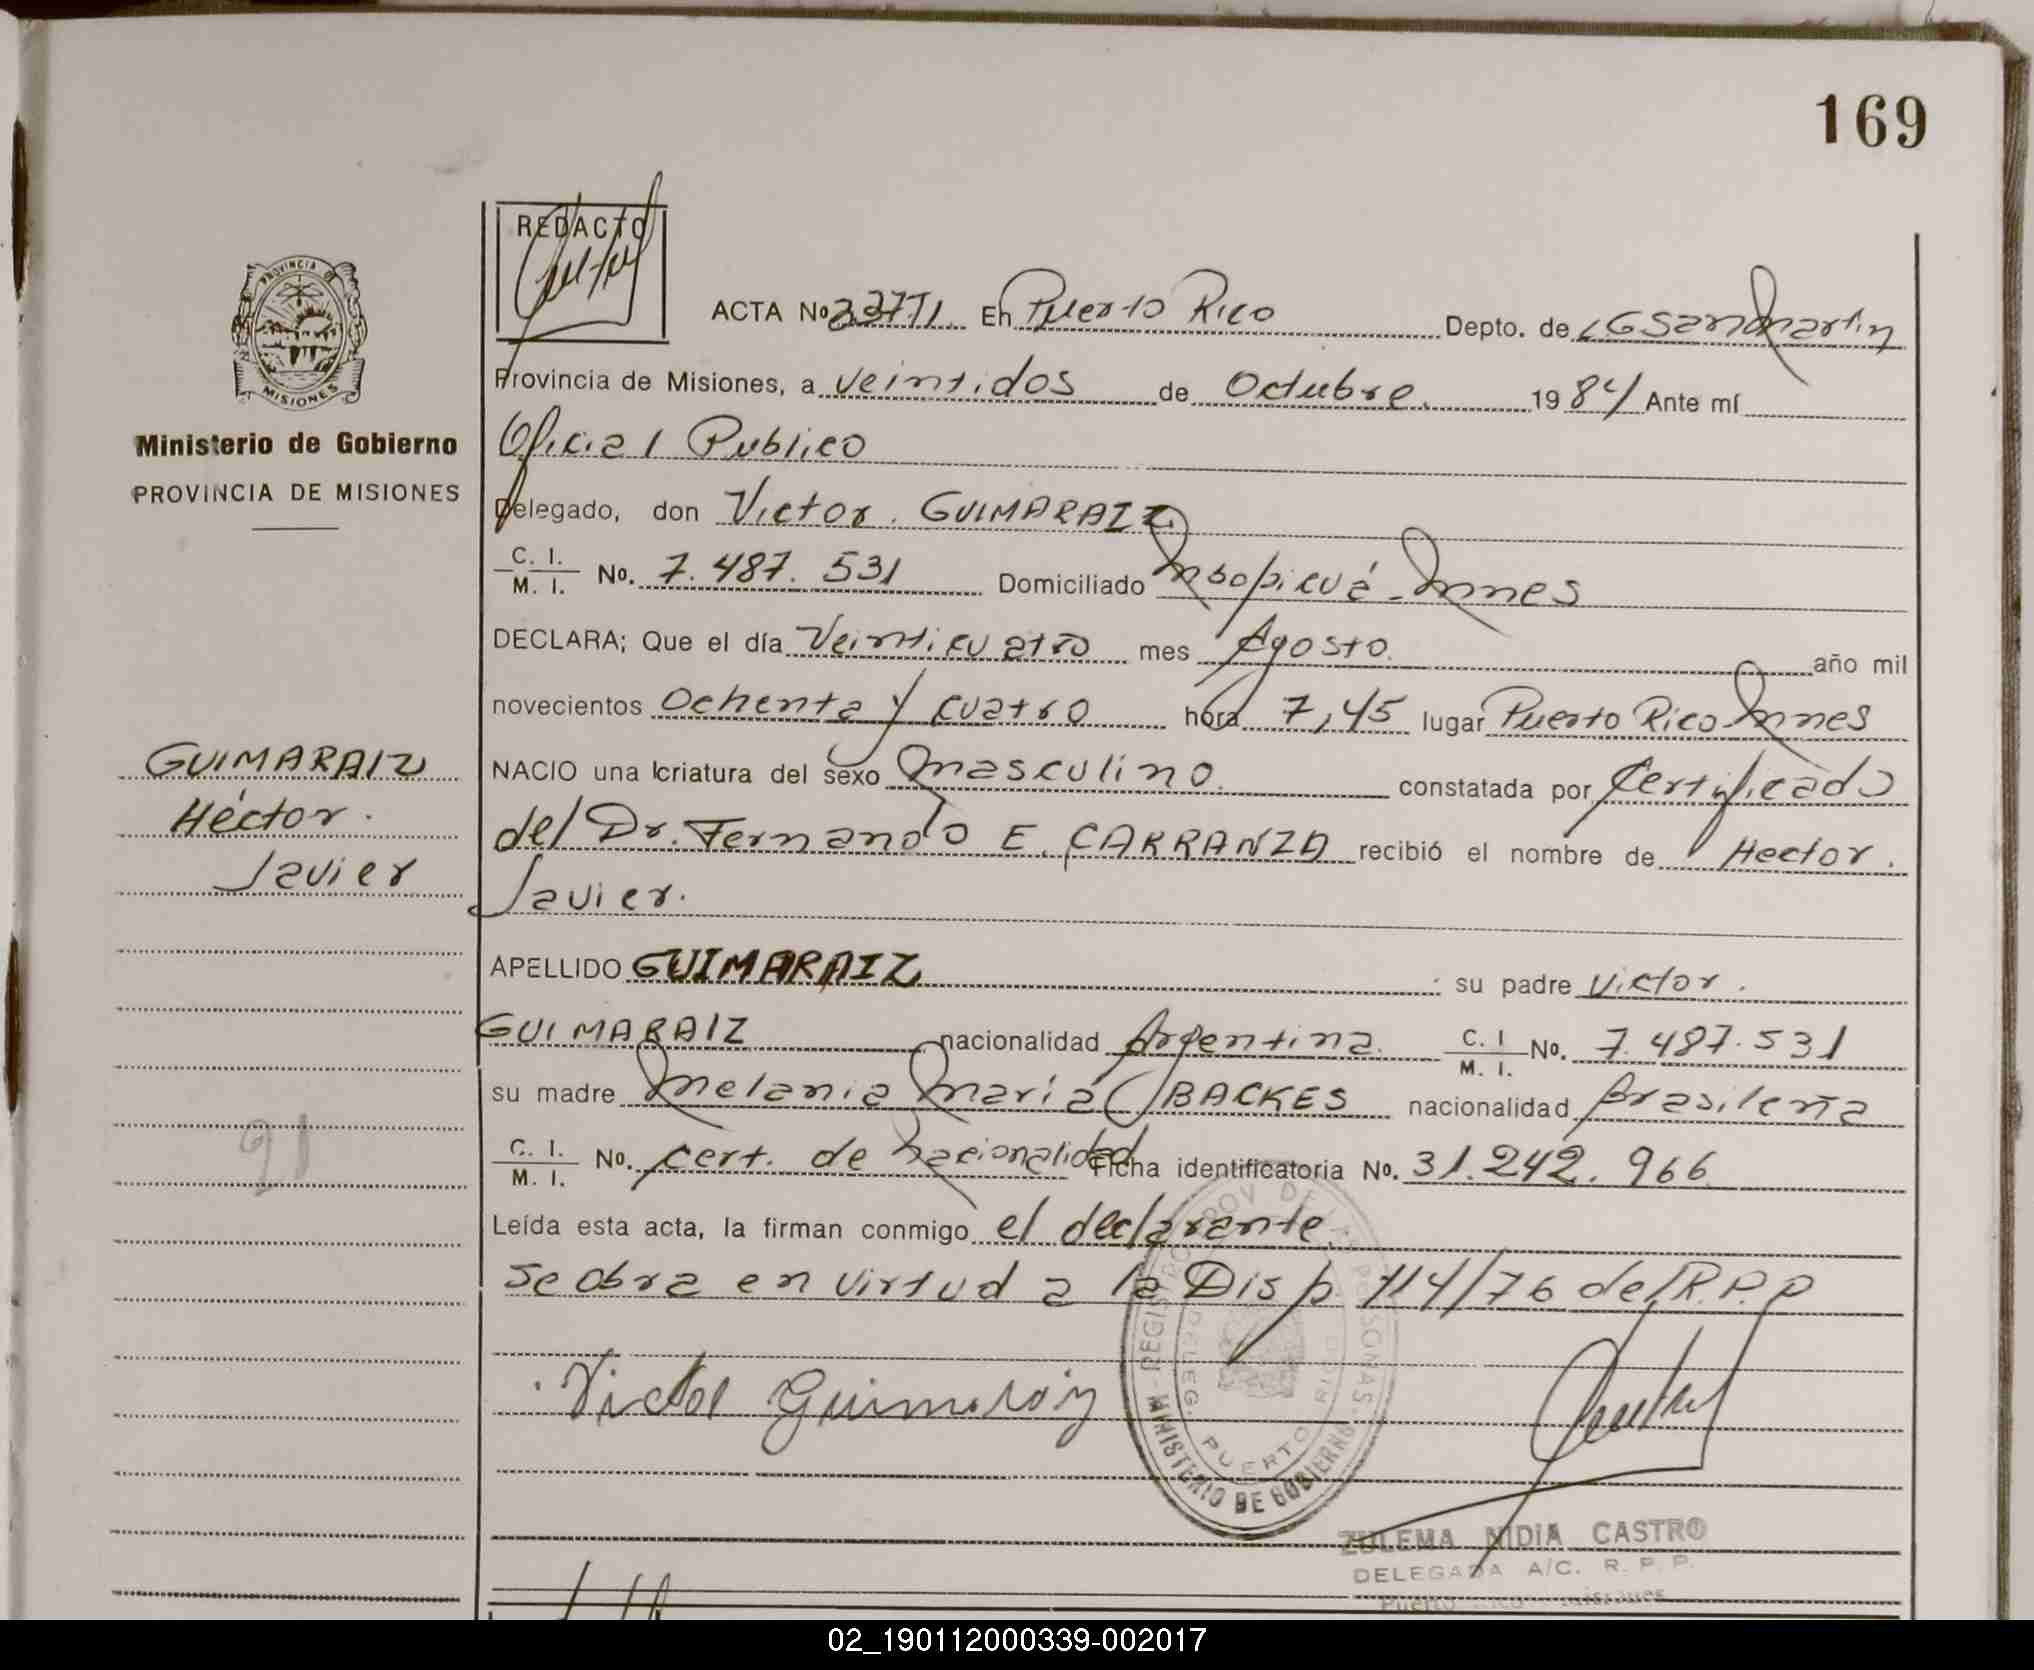 169
REDACTO
PROVINCIA DE
MISIONES
Ministerio de Gobierno
PROVINCIA DE MISIONES
ACTA Nº 237 TI En Puerto Rico Depto. de LG San Martin
Provincia de Misiones, a veintidos de Octubre. 1984 Ante mí
Oficial Publico
Delegado, don Victor. GUIMARAIZ
C. I.
M. I. Nº. 7.487.531 Domiciliado Mbopicuá - Mnnes
DECLARA; Que el día Veinticuatro mes Agosto. año mil
novecientos Ochenta y cuatro hora 7,45 lugar Puerto Rico Mnnes
NACIO una criatura del sexo masculino. constatada por Certificado
del Dr. Fernando E. CARRANZA recibió el nombre de Hector.
Javier.
GUIMARAIZ
Héctor.
Javier
APELLIDO GUIMARAIZ su padre Victor.
GUIMARAIZ nacionalidad Argentina. C. I
M. I. Nº. 7.487.531
su madre Melania María BACKES nacionalidad brasileña
C. I.
M. I. Nº. cert. de nacionalidad Ficha identificatoria Nº. 31.242.966
Leída esta acta, la firman conmigo el declarante.
se obra en virtud a la Disp. 114/76 del R.P.P
Victor Guimaraiz
MINISTERIO DE GOBIERNO
DELEG. PUERTO
ZULEMA NIDIA CASTRO
DELEGADA A/C. R. P. P.
Puerto Rico Misiones
02_190112000339-002017